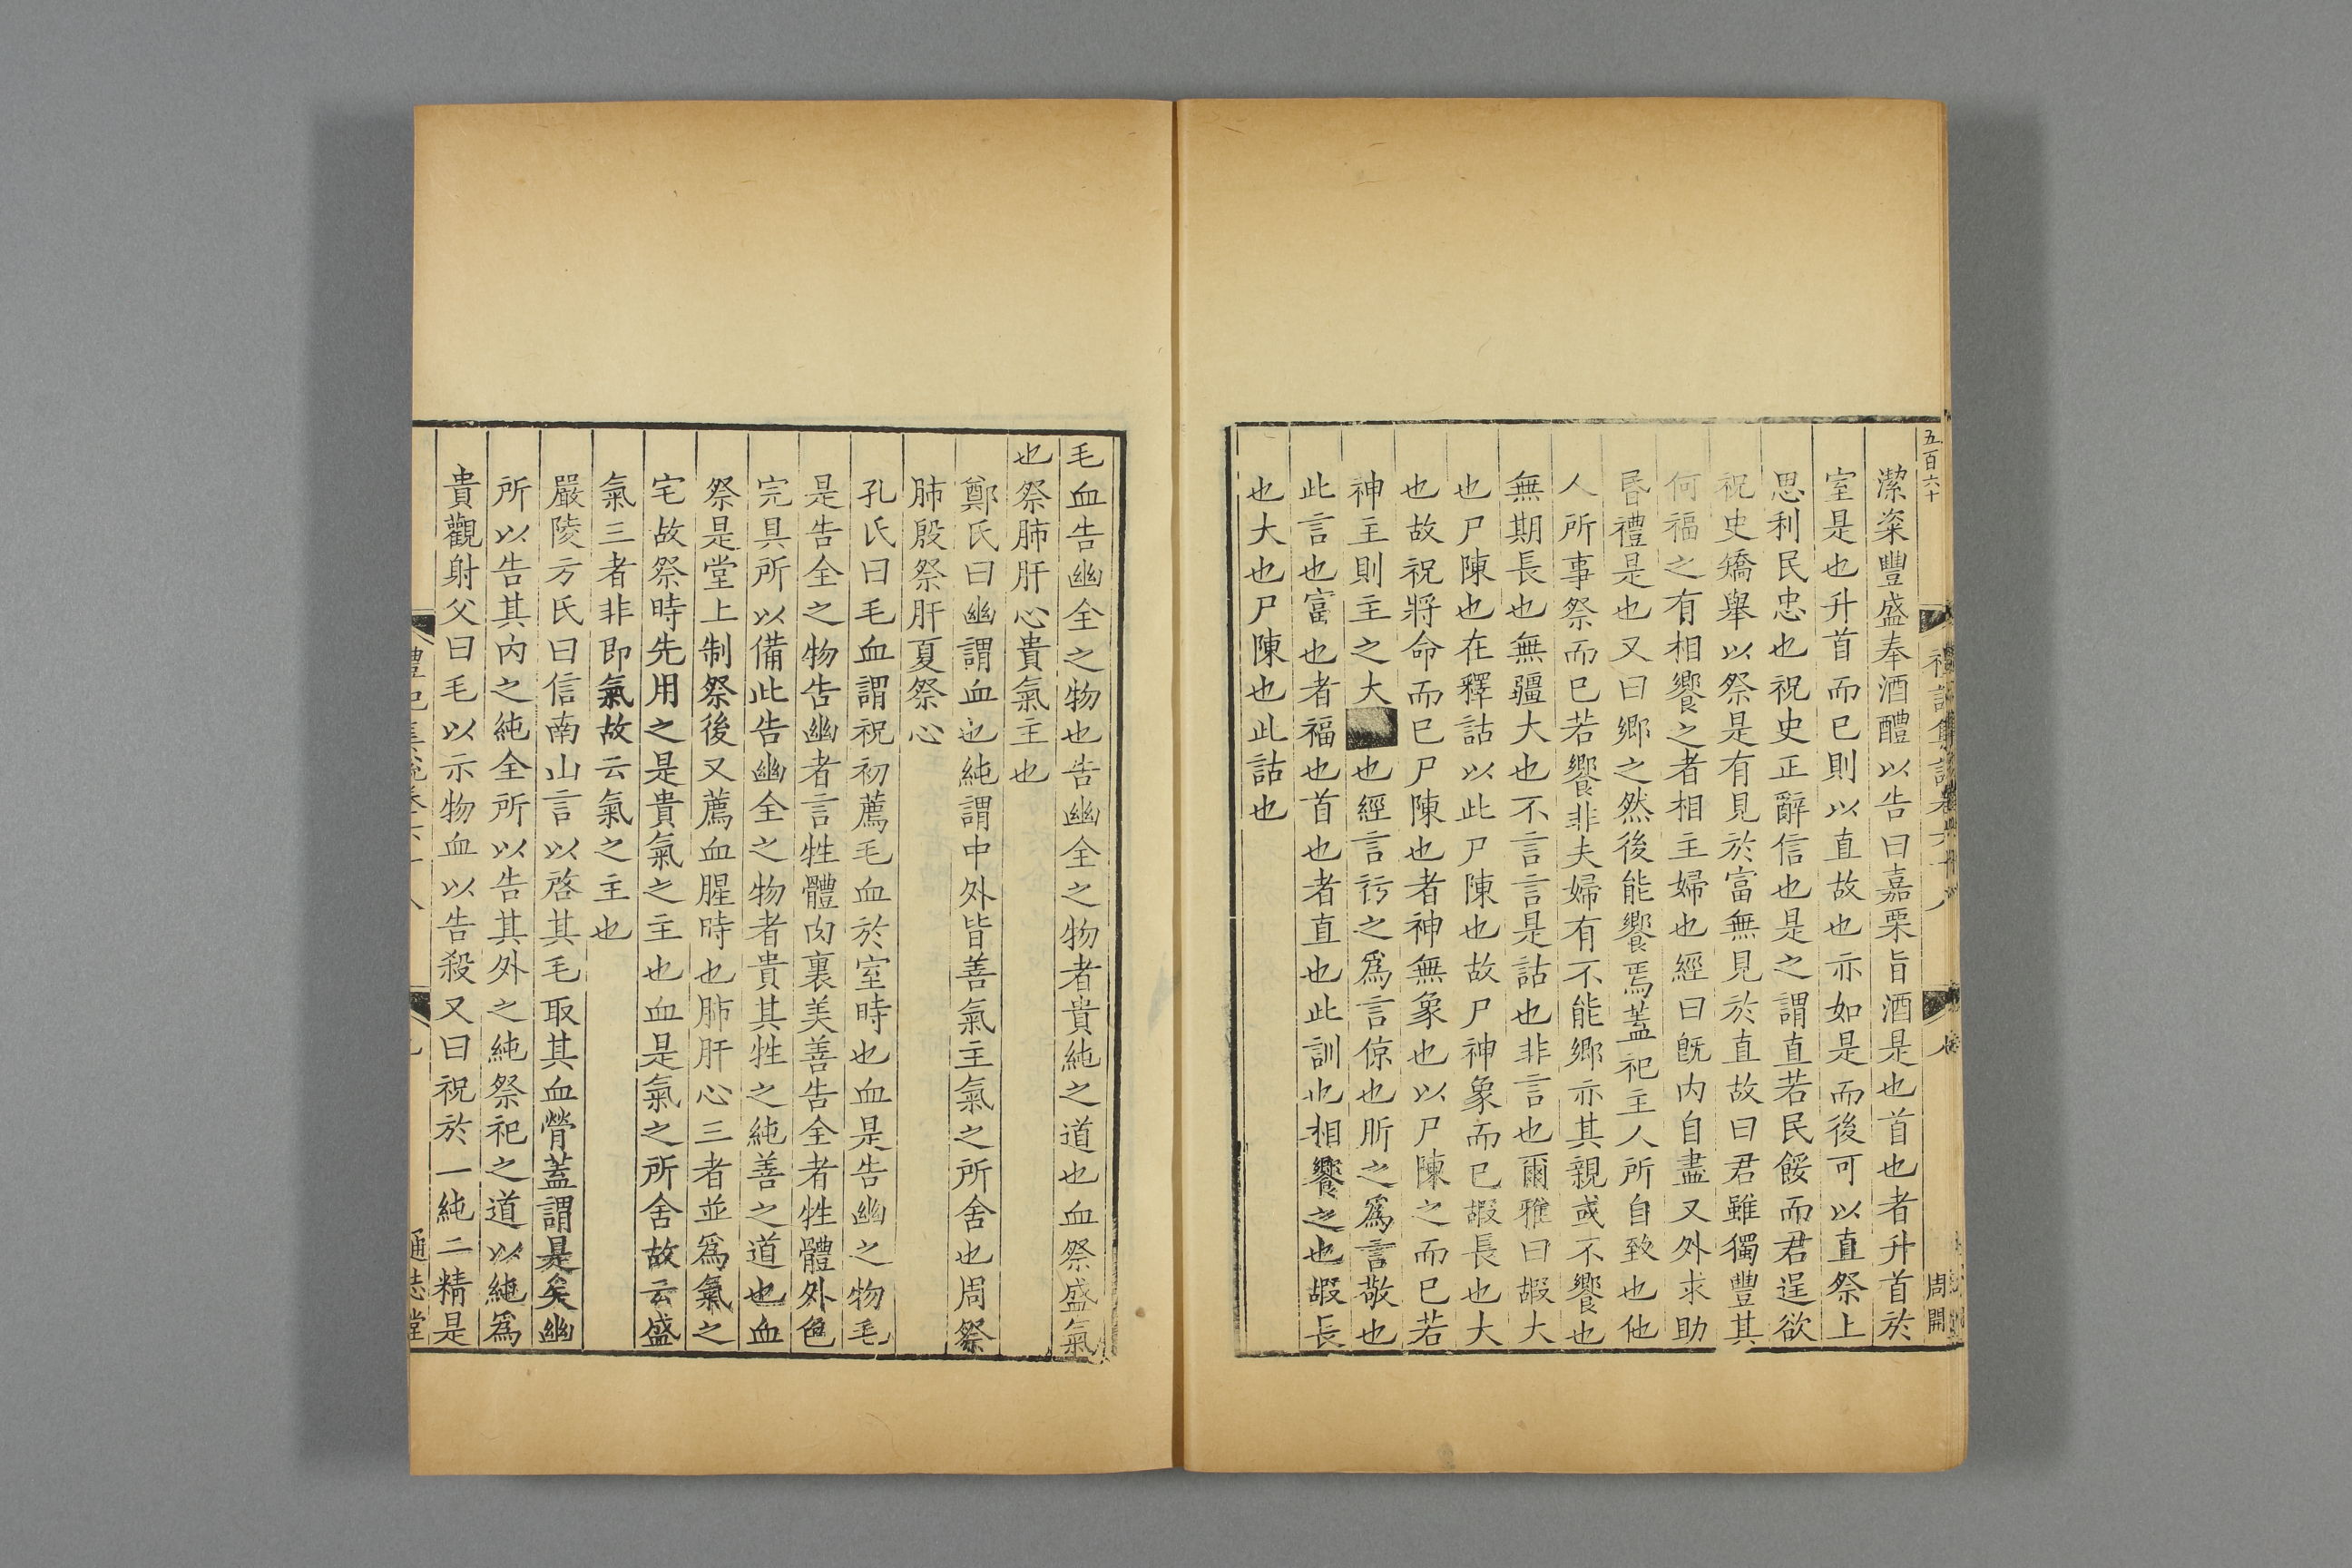 五百六十
周開
潔粢豐盛奉酒醴以告曰嘉栗旨酒是也首也者升首於
室是也升首而已則以直故也亦如是而後可以直祭上
思利民忠也祝史正辭信也是之謂直若民餒而君逞欲
祝史矯舉以祭是有見於富無見於直故曰君雖獨豐其
何福之有相饗之者相主婦也經曰旣内自盡又外求助
昬禮是也又曰鄉之然後能饗焉蓋祀主人所自致也他
人所事祭而已若饗非夫婦有不能鄉亦其親或不饗也
無期長也無疆大也不言言是詁也非言也爾雅曰嘏大
也尸陳也在釋詁以此尸陳也故尸神象而已嘏長也大
也故祝將命而已尸陳也者神無象也以尸陳之而已若
神主則主之大也經言訡之爲言倞也肵之爲言敬也
此言也富也者福也首也者直也此訓也相饗之也嘏長
也大也尸陳也此詁也
毛血告幽全之物也告幽全之物者貴純之道也血祭盛氣
也祭肺肝心貴氣主也
鄭氏曰幽謂血也純謂中外皆善氣主氣之所舍也周祭
肺殷祭肝夏祭心
孔氏曰毛血謂祝初薦毛血於室時也血是告幽之物毛
是告全之物告幽者言牲體肉裏美善告全者牲體外色
完具所以備此告幽全之物者貴其牲之純善之道也血
祭是堂上制祭後又薦血腥時也肺肝心三者並爲氣之
宅故祭時先用之是貴氣之主也血是氣之所舍故云盛
氣三者非即氣故云氣之主也
嚴陵方氏曰信南山言以啓其毛取其血膋蓋謂是矣幽
所以告其内之純全所以告其外之純祭祀之道以純爲
貴觀射父曰毛以示物血以告殺又曰祝於一純二精是
通志堂